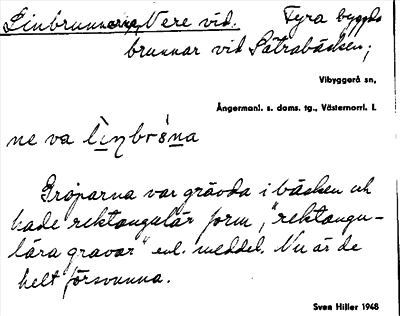 Linbrunnarna, Nere vid. Fyra byggda
brunnar vid Sätrabäcken;
Vibyggerå sn,
Ångermanl. s. doms. tg., Västernorrl. l.
ne va
Groparna var grävda i bäcken och
hade rektangulär form, "rektangu-
lära gravar" enl. meddel. Nu är de
helt försvunna.
Sven Hiller 1948